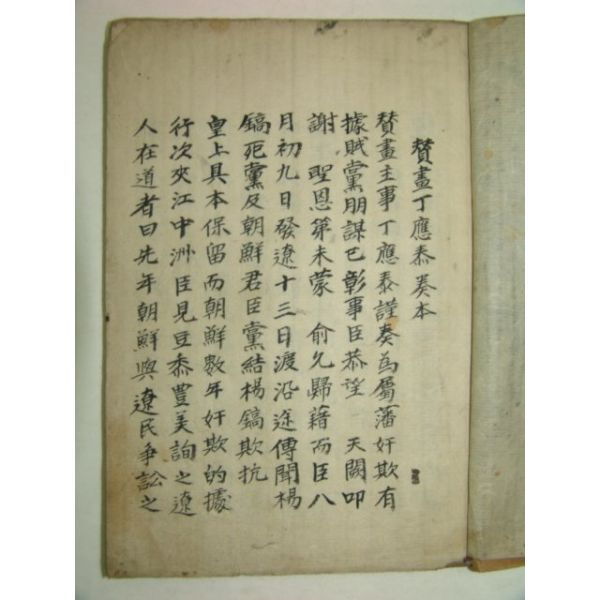 贊畫丁應泰奏本
贊畫主事丁應泰謹奏為屬藩奸欺有
據賊黨朋謀已彰事臣恭望 天闕叩
謝 聖恩第未蒙 俞允歸藉而臣八
月初九日發遼十三日渡沿途傳聞楊
鎬死黨及朝鮮君臣黨結楊鎬欺抗
皇上具本保留而朝鮮數年奸欺的據
行次夾江中洲臣見豆黍豊美詢之遼
人在道者曰先年朝鮮與遼民爭訟之